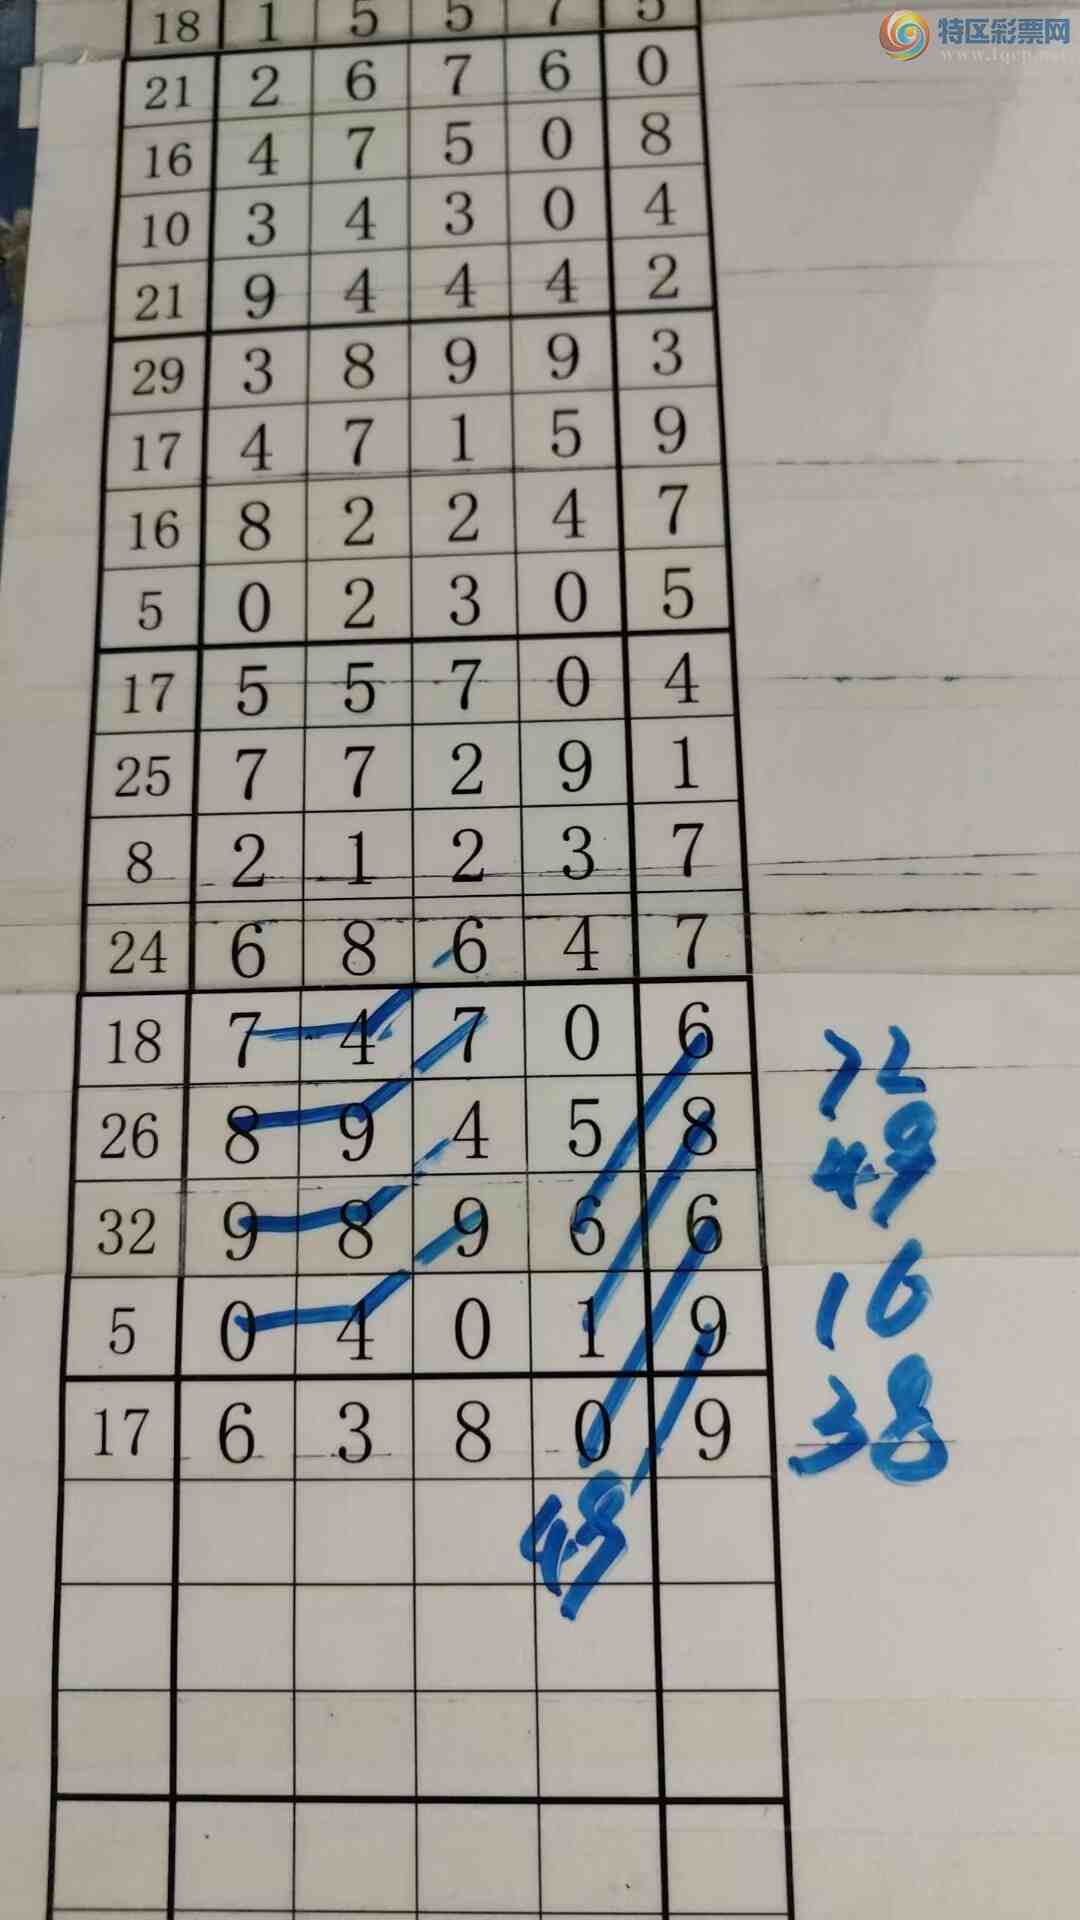 特区彩票网
www.tqcp.net
18 1 5 5 7 5
21 2 6 7 6 0
16 4 7 5 0 8
10 3 4 3 0 4
21 9 4 4 4 2
29 3 8 9 9 3
17 4 7 1 5 9
16 8 2 2 4 7
5 0 2 3 0 5
17 5 5 7 0 4
25 7 7 2 9 1
8 2 1 2 3 7
24 6 8 6 4 7
18 7 4 7 0 6 72
26 8 9 4 5 8 49
32 9 8 9 6 6
5 0 4 0 1 9 16
17 6 3 8 0 9 38
49